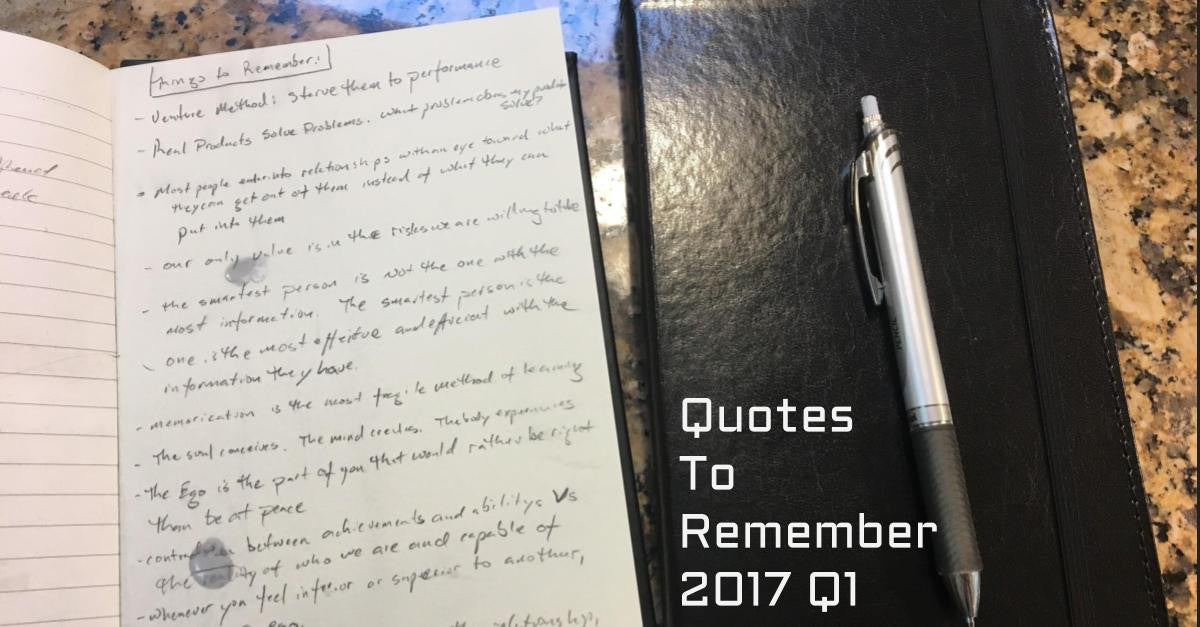 Things to Remember!
- Venture Method: Starve them to performance
- Real Products Solve Problems. What problem does my product
solve?
- Most people enter into relationships with an eye toward what
they can get out of them instead of what they can
put into them
- our only value is in the risks we are willing to take
- the smartest person is not the one with the
most information. The smartest person is the
one is the most effeitve and efficent with the
information they have.
- memorication is the most fragile method of learning
- The soul conceives. The mind creates. The body experiences
- The Ego is the part of you that would rather be right
than be at peace
- between achievements and abilitys Vs
the of who we are and capable of
- whenever you feel inferior or superior to another,
Ego.
relationships,
Quotes
To
Remember
2017 Q1